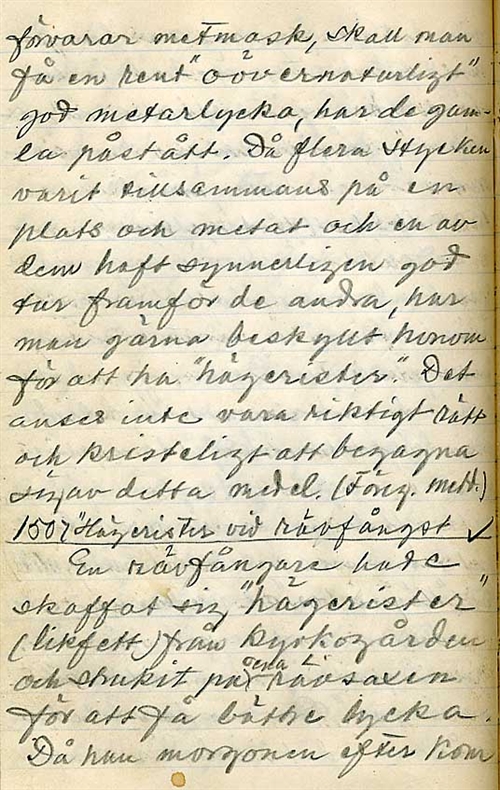 förvarar metmask, skall man
få en rent "oövernaturligt"
god metarlycka, har de gam-
la påstått. Då flera stycken
varit tillsammans på en
plats och metat och en av
dem haft synnerligen god
tur framför de andra, har
man gärna beskyllt honom
för att ha "hägerister". Det
anses inte vara riktigt rätt
och kristeligt att begagna
sig av detta medel. (Föreg. medd.)
1507 "Hägerister vid rävfångst ✓
En rävfångare hade
skaffat sig "hägerister"
(likfett) från kyrkogården
och strukit på ena rävsaxen
för att få bättre lycka.
Då han morgonen efter kom